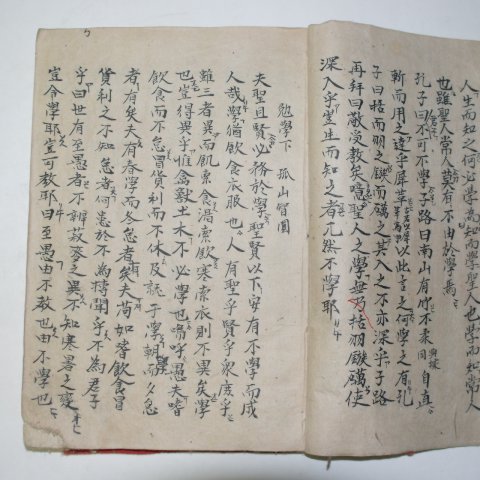 人生而知之何必學爲知而學聖人也學而知常人
也雖聖人常人莫有不由於學焉
孔子曰不可不學子路曰南山有竹不柔與揉同自直
斬而用之達乎犀革以此言之何學之有孔
子曰栝而羽之鏃而礪之其入之不亦深乎子路
再拜曰敬受教矣噫聖人之學無乃栝羽鏃礪使
深入乎豈生而知之者兀然不學耶
勉學下 孤山智圓
夫聖且賢必務於學聖賢以下安有不學而成
人哉學猶飲食衣服也人有聖乎賢乎衆庶乎
雖三者異而飢索食渴索飲寒索衣則不異矣學
也豈得異乎惟禽獸土木不必學也嗚呼愚夫嗜
飲食而不怠冒貨利而不休及就于學朝學而夕怠
者有矣夫有春學而冬怠者有矣夫苟如嗜飲食冒
貨利之不知怠者何患於不爲博聞乎不爲君子
乎曰世有至愚者不辨菽麥之異不知寒暑之變
豈令學耶豈可教耶曰至愚由不教也由不學也